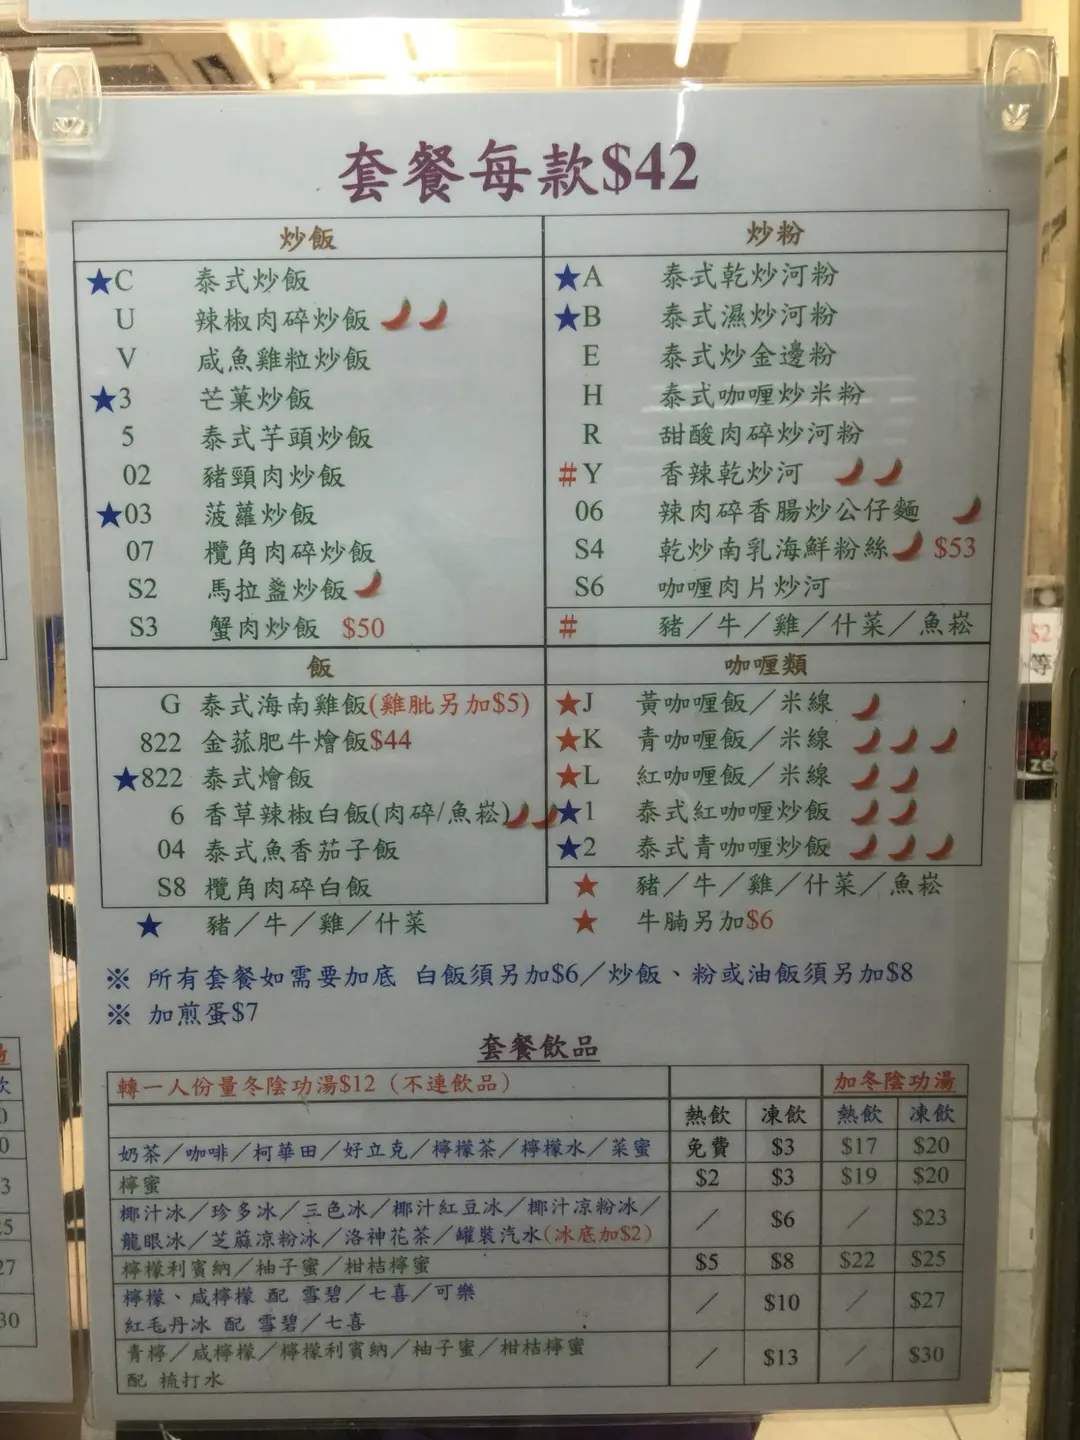 套餐每款$42
炒飯
★C 泰式炒飯
U 辣椒肉碎炒飯
V 咸魚雞粒炒飯
★3 芒菓炒飯
5 泰式芋頭炒飯
02 豬頸肉炒飯
★03 菠蘿炒飯
07 欖角肉碎炒飯
S2 馬拉盞炒飯
S3 蟹肉炒飯 $50
炒粉
★A 泰式乾炒河粉
★B 泰式濕炒河粉
E 泰式炒金邊粉
H 泰式咖喱炒米粉
R 甜酸肉碎炒河粉
#Y 香辣乾炒河
06 辣肉碎香腸炒公仔麵
S4 乾炒南乳海鮮粉絲 $53
S6 咖喱肉片炒河
# 豬／牛／雞／什菜／魚崧
飯
G 泰式海南雞飯(雞肶另加$5)
822 金菰肥牛燴飯$44
★822 泰式燴飯
6 香草辣椒白飯(肉碎/魚崧)
04 泰式魚香茄子飯
S8 欖角肉碎白飯
★ 豬／牛／雞／什菜
咖喱類
★J 黃咖喱飯／米線
★K 青咖喱飯／米線
★L 紅咖喱飯／米線
★1 泰式紅咖喱炒飯
★2 泰式青咖喱炒飯
★ 豬／牛／雞／什菜／魚崧
★ 牛腩另加$6
※ 所有套餐如需要加底 白飯須另加$6／炒飯、粉或油飯須另加$8
※ 加煎蛋$7
套餐飲品
轉一人份量冬陰功湯$12（不連飲品） 加冬陰功湯
熱飲 凍飲 熱飲 凍飲
奶茶／咖啡／柯華田／好立克／檸檬茶／檸檬水／菜蜜 免費 $3 $17 $20
檸蜜 $2 $3 $19 $20
椰汁冰／珍多冰／三色冰／椰汁紅豆冰／椰汁凉粉冰／
龍眼冰／芝蔴凉粉冰／洛神花茶／罐裝汽水(冰底加$2) ／ $6 ／ $23
檸檬利賓納／柚子蜜／柑桔檸蜜 $5 $8 $22 $25
檸檬、咸檸檬 配 雪碧／七喜／可樂
紅毛丹冰 配 雪碧／七喜 ／ $10 ／ $27
青檸／咸檸檬／檸檬利賓納／柚子蜜／柑桔檸蜜
配 梳打水 ／ $13 ／ $30
$2
等